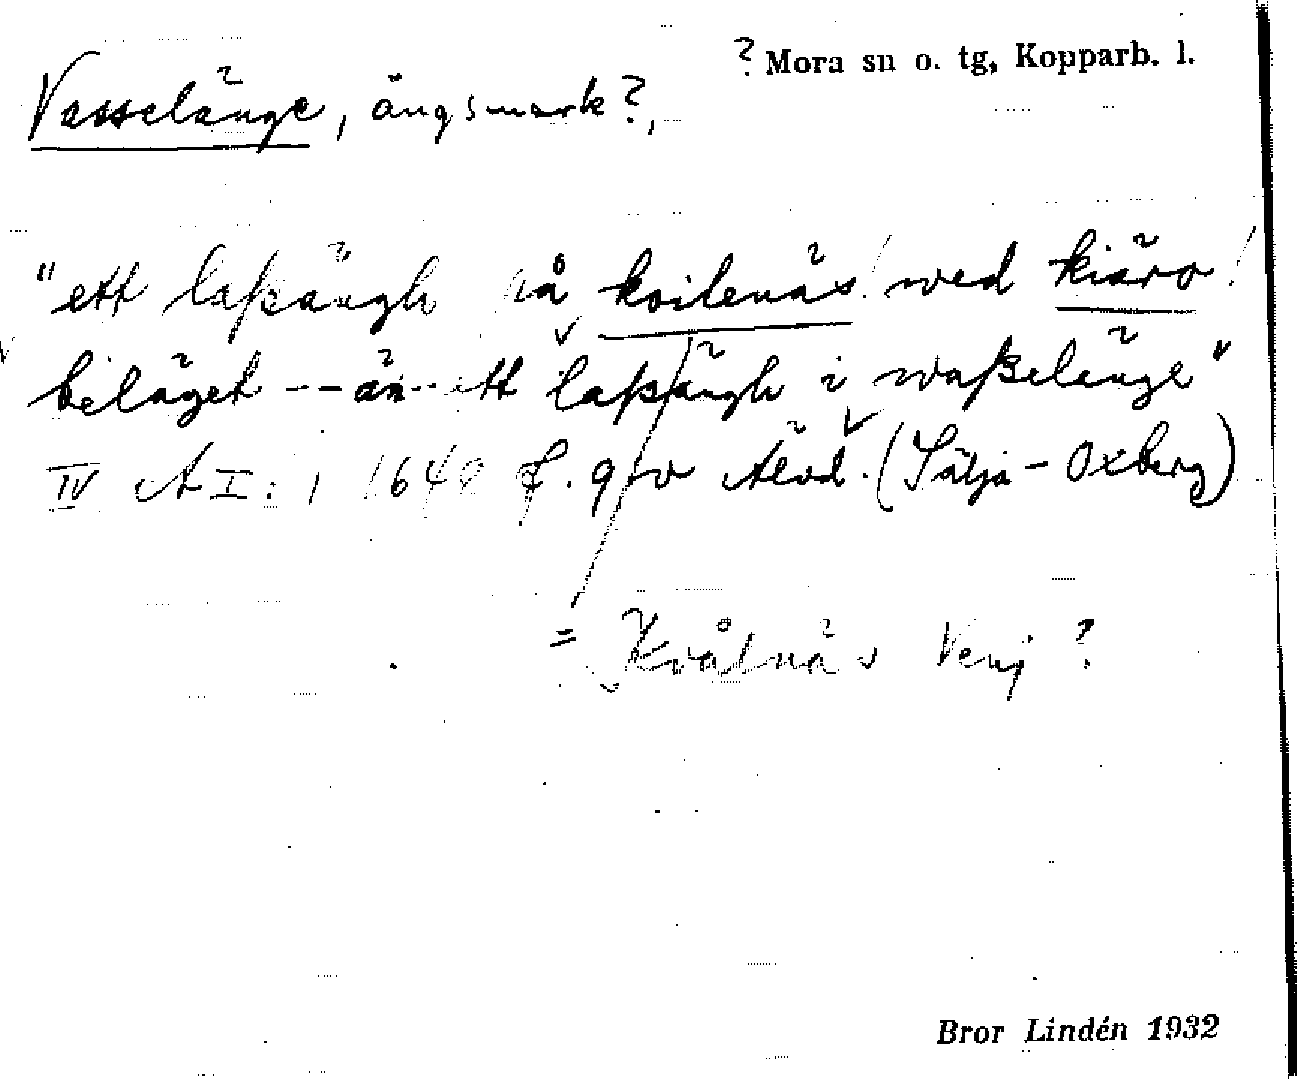 ? Mora sn o. tg, Kopparb. l.
Vasselänge, ängsmark?,
"ett laßängh på koilenäs! wed kiäro!
beläget --- än -- ett laßängh i waßelänge"
IV A I: 1 1648 f. 9 v Älvd. (Sälja - Oxberg)
= Kvålnäs Venj ?
Bror Lindén 1932